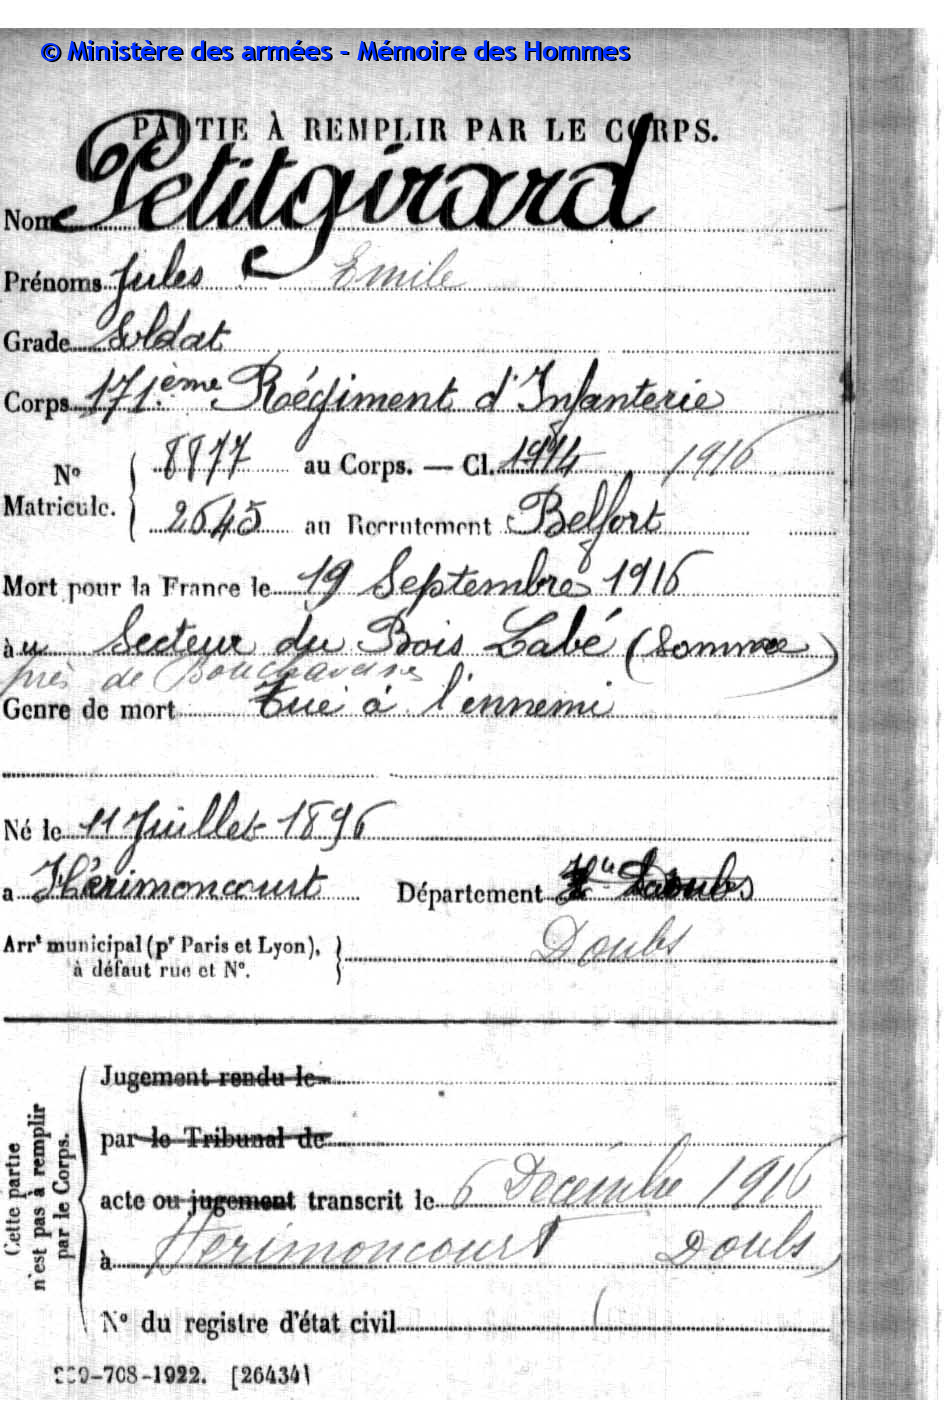 © Ministère des armées - Mémoire des Hommes
PARTIE À REMPLIR PAR LE CORPS.
Nom Petitgirard
Prénoms Jules Emile
Grade Soldat
Corps 171ème Régiment d'Infanterie
N° Matricule. 8877 au Corps. — Cl. 1914 1916
2645 au Recrutement Belfort
Mort pour la France le 19 Septembre 1916
à u Secteur du Bois Labé (Somme)
près de Bouchavesnes
Genre de mort Tué à l'ennemi
Né le 11 Juillet 1896
à Hérimoncourt Département Doubs
Arrt municipal (pr Paris et Lyon), Doubs
à défaut rue et N°.
Cette partie n'est pas à remplir par le Corps.
Jugement rendu le
par le Tribunal de
acte ou jugement transcrit le 6 Décembre 1916
à Hérimoncourt Doubs
N° du registre d'état civil
-708-1922. [26434]